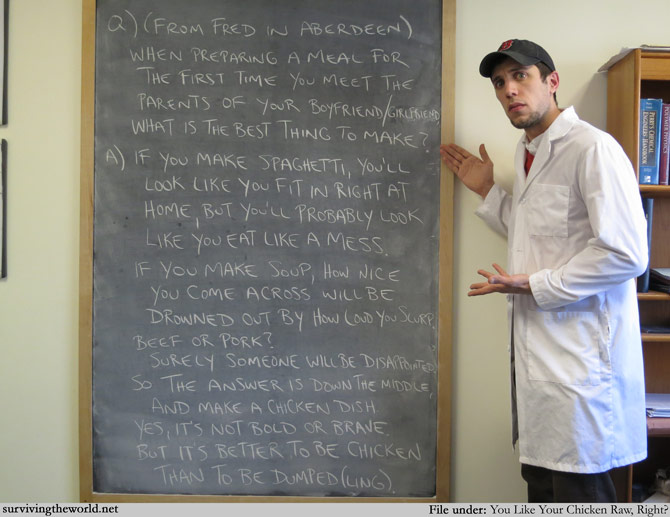 Q) (FROM FRED IN ABERDEEN)
WHEN PREPARING A MEAL FOR
THE FIRST TIME YOU MEET THE
PARENTS OF YOUR BOYFRIEND/GIRLFRIEND,
WHAT IS THE BEST THING TO MAKE?
A) IF YOU MAKE SPAGHETTI, YOU'LL
LOOK LIKE YOU FIT IN RIGHT AT
HOME, BUT YOU'LL PROBABLY LOOK
LIKE YOU EAT LIKE A MESS.
IF YOU MAKE SOUP, HOW NICE
YOU COME ACROSS WILL BE
DROWNED OUT BY HOW LOUD YOU SLURP.
BEEF OR PORK?
SURELY SOMEONE WILL BE DISAPPOINTED
SO THE ANSWER IS DOWN THE MIDDLE,
AND MAKE A CHICKEN DISH
YES, IT'S NOT BOLD OR BRAVE.
BUT IT'S BETTER TO BE CHICKEN
THAN TO BE DUMPED(LING).
PERRY'S CHEMICAL
ENGINEERS' HANDBOOK
POLYMER PHYSICS
survivingtheworld.net
File under: You Like Your Chicken Raw, Right?